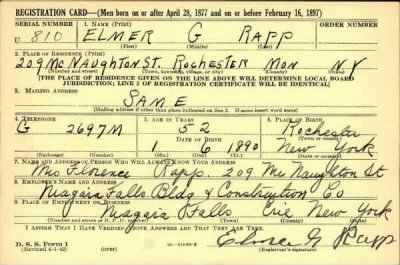 REGISTRATION CARD—(Men born on or after April 28, 1877 and on or before February 16, 1897)
SERIAL NUMBER 1. NAME (Print)
U 810 ELMER G RAPP
(First) (Middle) (Last)
2. PLACE OF RESIDENCE (Print)
209 McNAUGHTON ST. ROCHESTER MON NY
(Number and street) (Town, township, village, or city) (County) (State)
[THE PLACE OF RESIDENCE GIVEN ON THE LINE ABOVE WILL DETERMINE LOCAL BOARD
JURISDICTION; LINE 2 OF REGISTRATION CERTIFICATE WILL BE IDENTICAL]
3. MAILING ADDRESS
SAME
(Mailing address if other than place indicated on line 2. If same insert word same)
4. TELEPHONE 5. AGE IN YEARS 6. PLACE OF BIRTH
G 2697M 52 Rochester
DATE OF BIRTH (Town or county)
1 6 1890 New York
(Exchange) (Number) (Mo.) (Day) (Yr.) (State or country)
7. NAME AND ADDRESS OF PERSON WHO WILL ALWAYS KNOW YOUR ADDRESS
Mrs Florence Rapp. 209 McNaughton St
8. EMPLOYER'S NAME AND ADDRESS
Niagara Falls Bldg & Construction Co
9. PLACE OF EMPLOYMENT OR BUSINESS
Niagara Falls Erie New York
(Number and street or R. F. D. number) (Town) (County) (State)
I AFFIRM THAT I HAVE VERIFIED ABOVE ANSWERS AND THAT THEY ARE TRUE.
D. S. S. Form 1
(Revised 4-1-42) (over) Elmer G Rapp
(Registrant's signature)